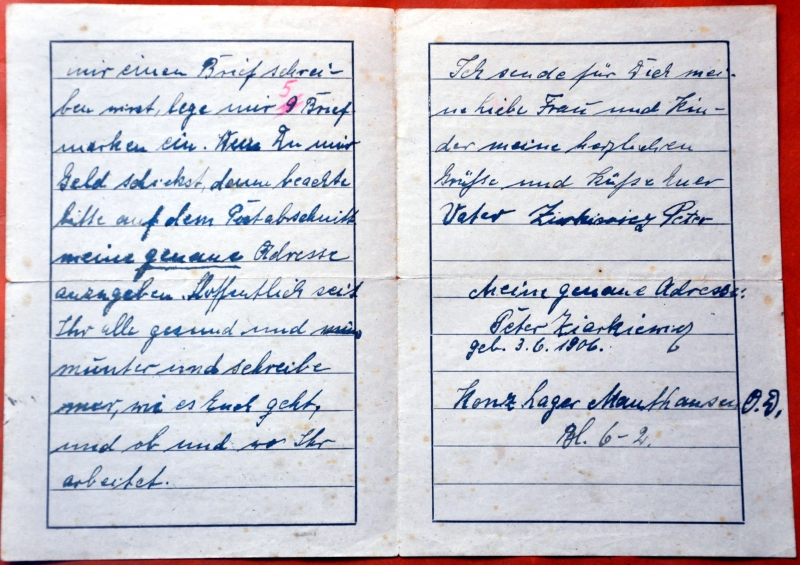 mir einen Brief schrei-
ben wirst, lege mir 5 9 Brief
marken ein. Wenn Du mir
Geld schickst, dann beachte
bitte auf dem Postabschnitt
meine genaue Adresse
anzugeben. Hoffentlich seit
Ihr alle gesund und
munter und schreibe
mir, wie es Euch geht,
und ob und wo Ihr
arbeitet.
Ich sende für Dich mei-
ne liebe Frau und Kin-
der meine herzlichen
Grüsse und Küsse Euer
Vater Ziarkiewicz Peter
Meine genaue Adresse:
Peter Ziarkiewicz
geb. 3.6.1906.
Konz Lager Mauthausen O.D.
Bl. 6-2.